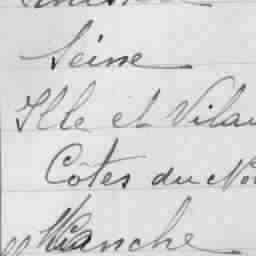 Seine
Ille et Vilai
Côtes du No
Manche